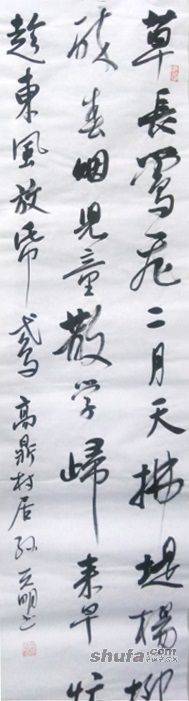 草長鶯飛二月天拂堤楊柳
醉春烟兒童散学歸来早忙
趁東風放帋鳶 高鼎村居
shufa.com